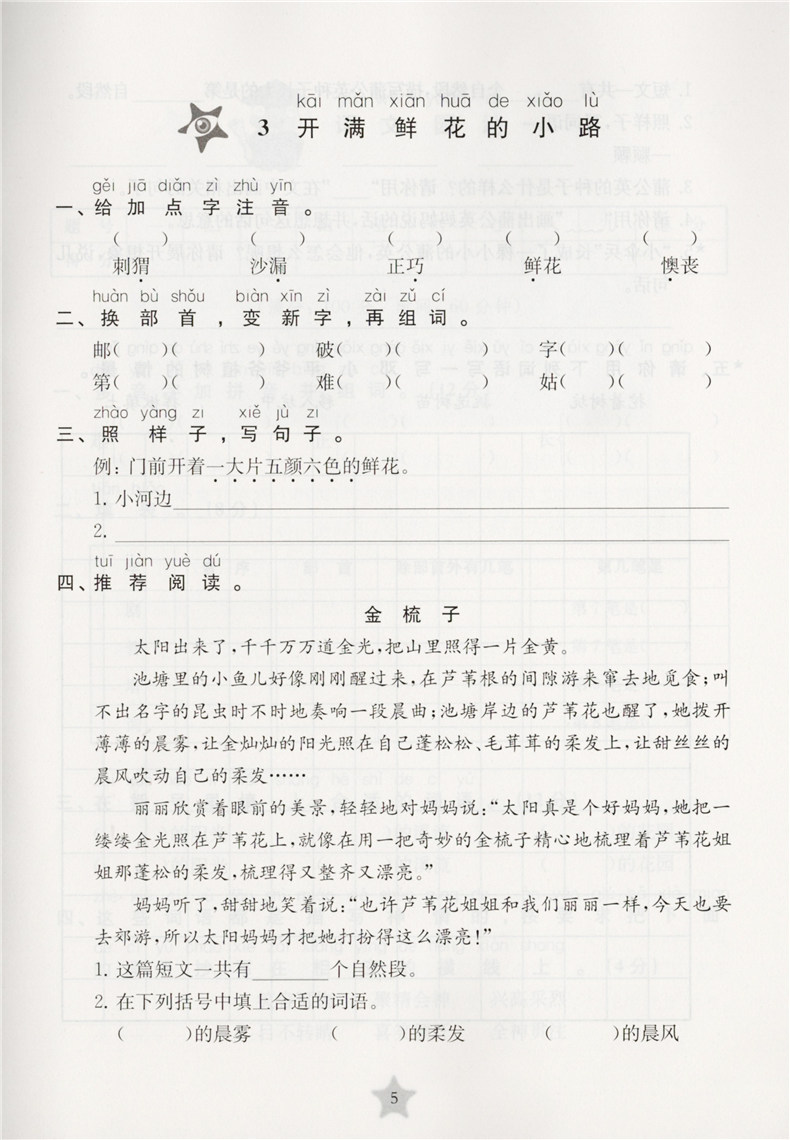 kāi mǎn xiān huā de xiǎo lù
3 开满鲜花的小路
gěi jiā diǎn zì zhù yīn
一、给加点字注音。
( ) ( ) ( ) ( ) ( )
刺猬 沙漏 正巧 鲜花 懊丧
huàn bù shǒu biàn xīn zì zài zǔ cí
二、换部首,变新字,再组词。
邮( )( ) 破( )( ) 字( )( )
第( )( ) 难( )( ) 姑( )( )
zhào yàng zi xiě jù zi
三、照样子,写句子。
例:门前开着一大片五颜六色的鲜花。
1. 小河边
2.
tuī jiàn yuè dú
四、推荐阅读。
金梳子
太阳出来了,千千万万道金光,把山里照得一片金黄。
池塘里的小鱼儿好像刚刚醒过来,在芦苇根的间隙游来窜去地觅食;叫
不出名字的昆虫时不时地奏响一段晨曲;池塘岸边的芦苇花也醒了,她拨开
薄薄的晨雾,让金灿灿的阳光照在自己蓬松松、毛茸茸的柔发上,让甜丝丝的
晨风吹动自己的柔发……
丽丽欣赏着眼前的美景,轻轻地对妈妈说:“太阳真是个好妈妈,她把一
缕缕金光照在芦苇花上,就像在用一把奇妙的金梳子精心地梳理着芦苇花姐
姐那蓬松的柔发,梳理得又整齐又漂亮。”
妈妈听了,甜甜地笑着说:“也许芦苇花姐姐和我们丽丽一样,今天也要
去郊游,所以太阳妈妈才把她打扮得这么漂亮!”
1. 这篇短文一共有________个自然段。
2. 在下列括号中填上合适的词语。
( )的晨雾 ( )的柔发 ( )的晨风
5